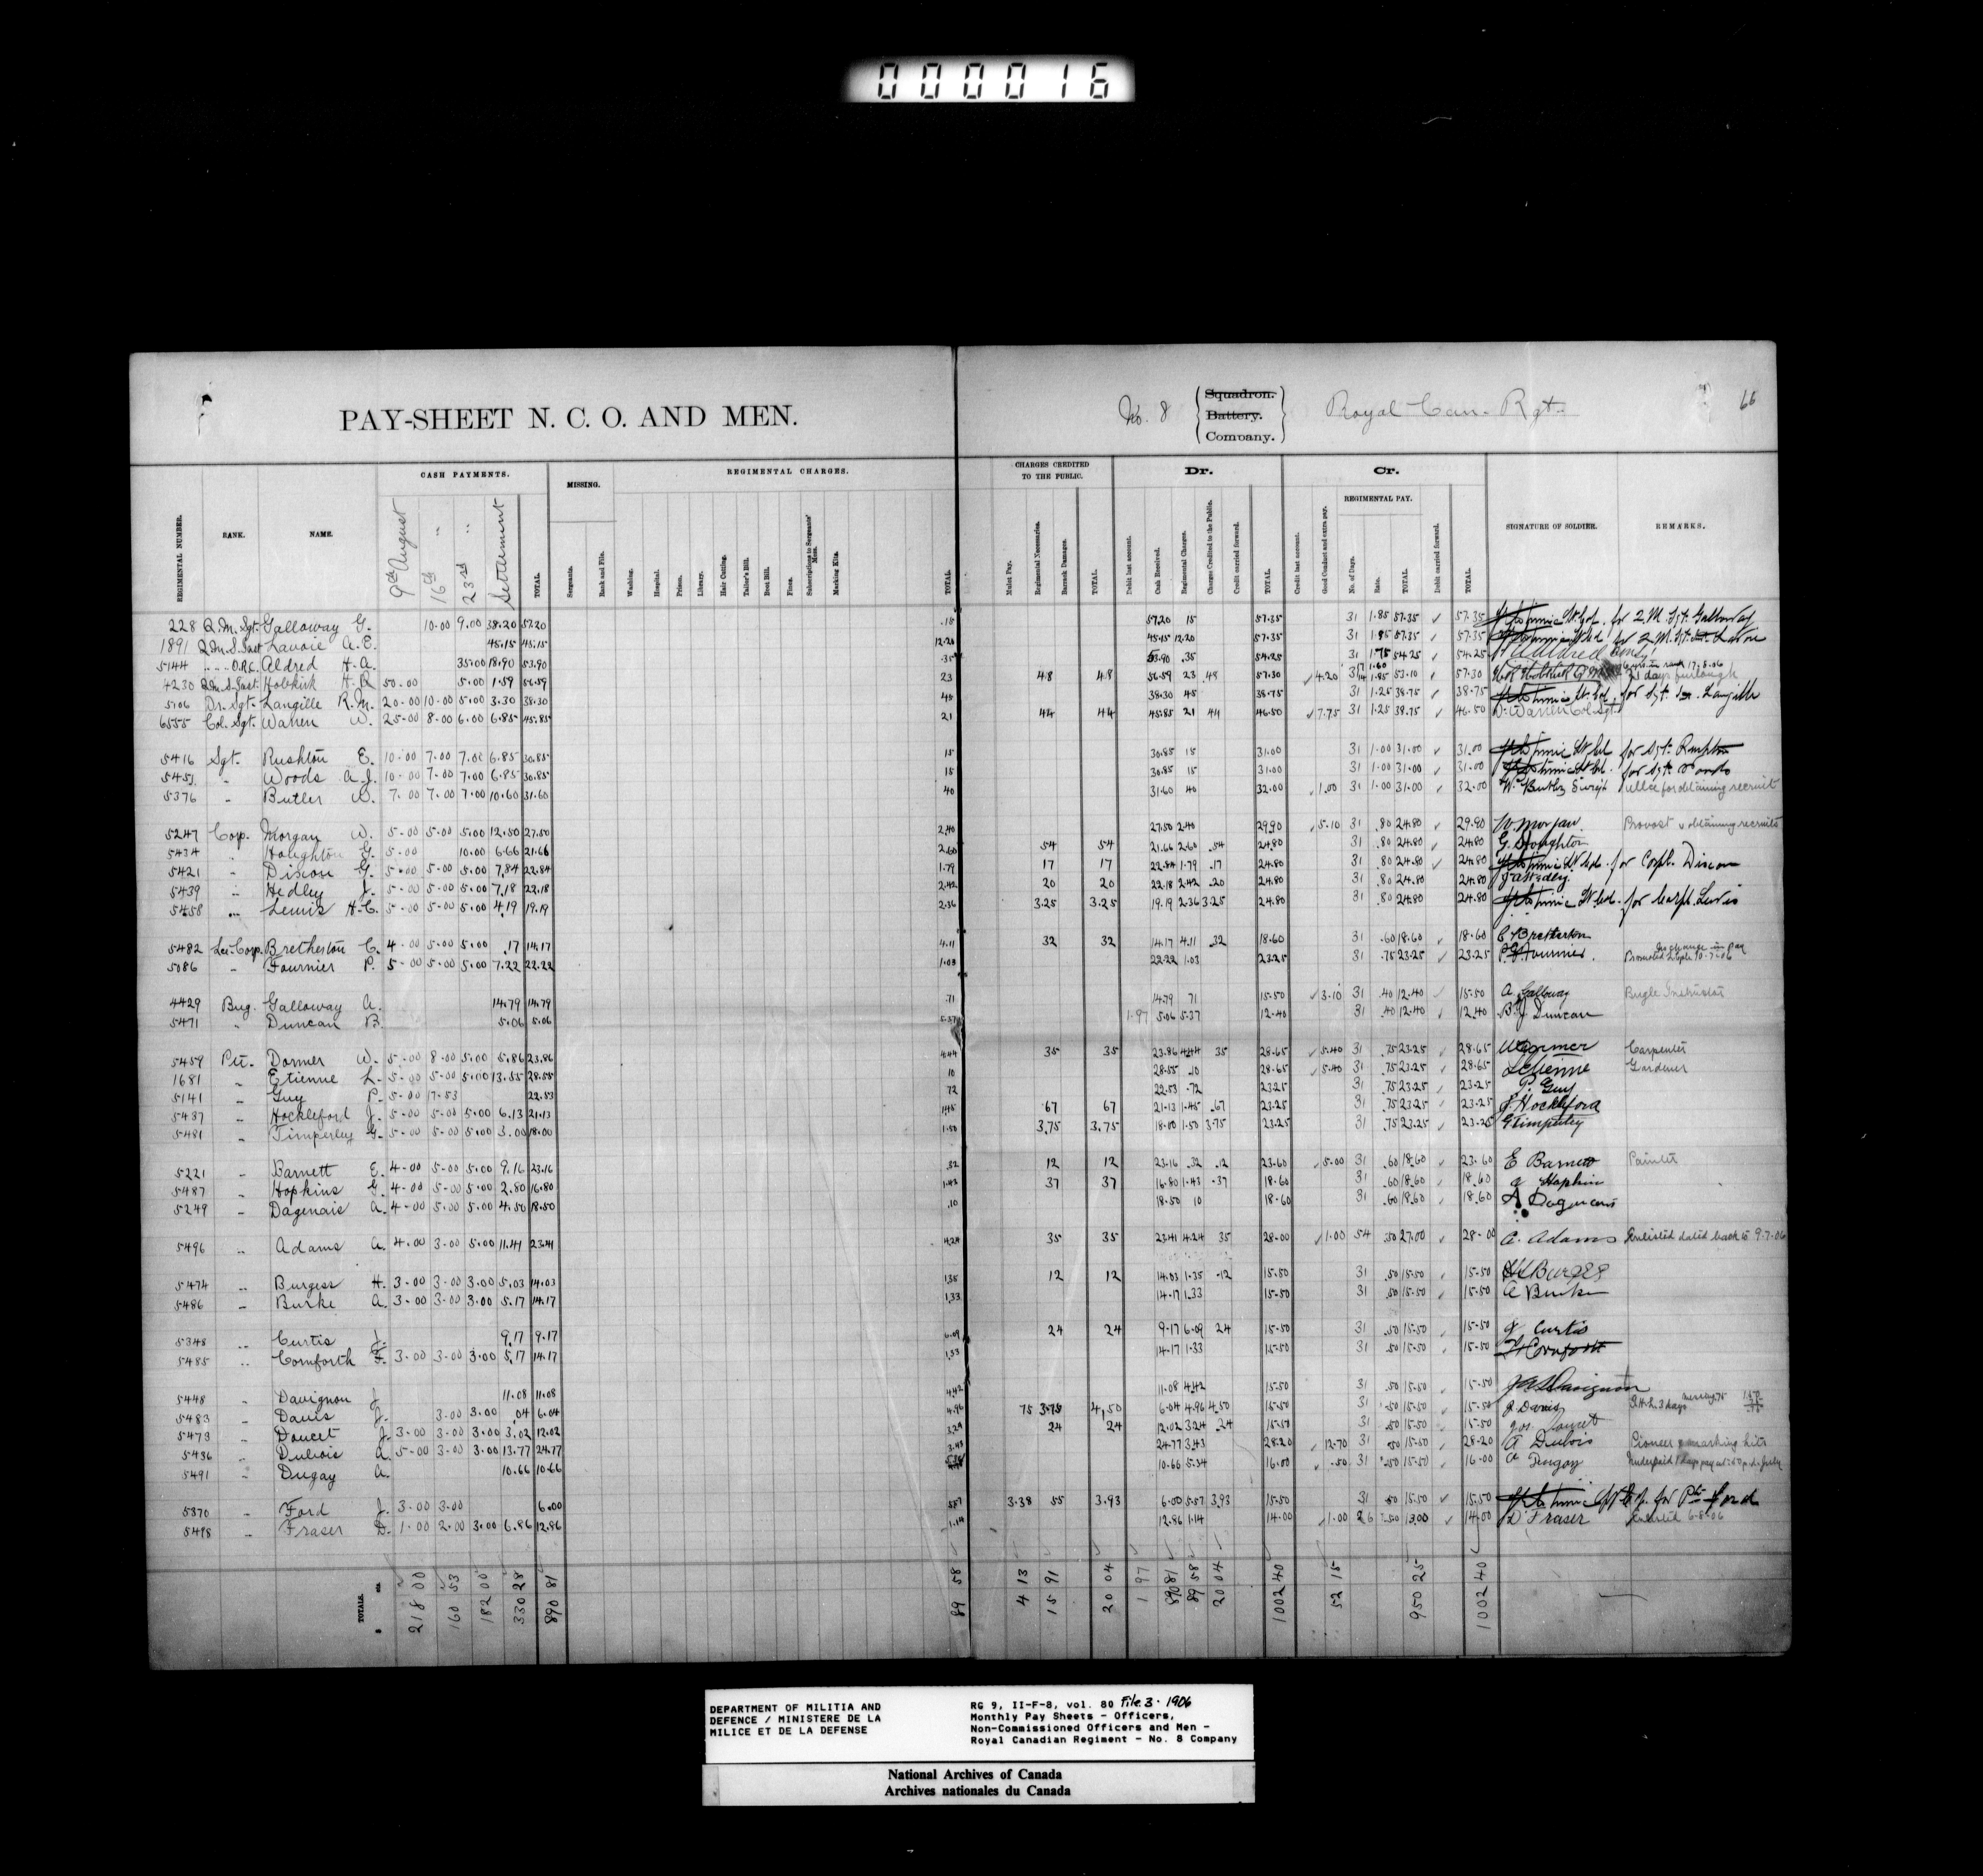 000016
PAY-SHEET N. C. O. AND MEN.
No. 8 Squadron. Battery. Company. Royal Can. Rgt. 66
CASH PAYMENTS. MISSING. REGIMENTAL CHARGES. CHARGES CREDITED TO THE PUBLIC. Dr. Cr.
REGIMENTAL PAY.
REGIMENTAL NUMBER. RANK. NAME. 9th August 16th " 23rd " Settlement TOTAL. Sergeants. Rank and File. Washing. Hospital. Prison. Library. Hair Cutting. Tailor's Bill. Boot Bill. Fines. Subscriptions to Sergeants' Mess. Marking Kits. TOTAL. Mulct Pay. Regimental Necessaries. Barrack Damages. TOTAL. Debit last account. Cash Received. Regimental Charges. Charges Credited to the Public. Credit carried forward. TOTAL. Credit last account. Good Conduct and extra pay. No. of Days. Rate. TOTAL. Debit carried forward. TOTAL. SIGNATURE OF SOLDIER. REMARKS.
228 Q.M. Sgt. Galloway G. 10.00 9.00 38.20 57.20 .15 57.20 15 57.35 31 1.85 57.35 ✓ 57.35 for Q.M. Sgt. Galloway
1891 Q.M.S. Inst Lavoie A.E. 45.15 45.15 12.20 45.15 12.20 57.35 31 1.85 57.35 ✓ 57.35 for Q.M. Sgt. Lavoie
5144 " " O.R.C. Aldred H.A. 35.00 18.90 53.90 .35 53.90 .35 54.25 31 1.75 54.25 54.25 Aldred
4230 Q.M.S. Inst. Hobkirk H.R. 50.00 5.00 1.59 56.59 23 48 48 56.59 23 48 57.30 ✓ 4.20 31 17 1.60 14 1.85 53.10 ✓ 57.30 Hobkirk 17.8.06 days furlough
5106 Dr. Sgt. Langille R.M. 20.00 10.00 5.00 3.30 38.30 45 38.30 45 38.75 31 1.25 38.75 ✓ 38.75 for Sgt. Langille
6555 Col. Sgt. Warren W. 25.00 8.00 6.00 6.85 45.85 21 44 44 45.85 21 44 46.50 ✓ 7.75 31 1.25 38.75 ✓ 46.50 W. Warren Col. Sgt.
5416 Sgt. Rushton E. 10.00 7.00 7.00 6.85 30.85 15 30.85 15 31.00 31 1.00 31.00 ✓ 31.00 for Sgt. Rushton
5451 " Woods A.J. 10.00 7.00 7.00 6.85 30.85 15 30.85 15 31.00 31 1.00 31.00 ✓ 31.00 for Sgt. Woods
5376 " Butler W. 7.00 7.00 7.00 10.60 31.60 40 31.60 40 32.00 ✓ 1.00 31 1.00 31.00 ✓ 32.00 W. Butler Sergt for obtaining recruit
5247 Corp. Morgan W. 5.00 5.00 5.00 12.50 27.50 2.40 27.50 2.40 29.90 ✓ 5.10 31 .80 24.80 ✓ 29.90 W. Morgan Provost & obtaining recruits
5434 " Houghton G. 5.00 10.00 6.66 21.66 2.60 54 54 21.66 2.60 .54 24.80 31 .80 24.80 ✓ 24.80 G. Houghton
5421 " Dixon G. 5.00 5.00 5.00 7.84 22.84 1.79 17 17 22.84 1.79 .17 24.80 31 .80 24.80 ✓ 24.80 for Corpl. Dixon
5439 " Hedley J. 5.00 5.00 5.00 7.18 22.18 2.42 20 20 22.18 2.42 .20 24.80 31 .80 24.80 24.80 J. Hedley
5458 " Lewis H.C. 5.00 5.00 5.00 4.19 19.19 2.36 3.25 3.25 19.19 2.36 3.25 24.80 31 .80 24.80 24.80 for Corpl. Lewis
5482 Lce. Corp. Bretherton C. 4.00 5.00 5.00 .17 14.17 4.11 32 32 14.17 4.11 .32 18.60 31 .60 18.60 ✓ 18.60 C Bretherton
5086 " Fournier P. 5.00 5.00 5.00 7.22 22.22 1.03 22.22 1.03 23.25 31 .75 23.25 ✓ 23.25 P. Fournier. Promoted no change in pay
4429 Bug. Galloway A. 14.79 14.79 .71 14.79 71 15.50 ✓ 3.10 31 .40 12.40 ✓ 15.50 A. Galloway Bugle Instructor
5471 " Duncan B. 5.06 5.06 5.37 1.97 5.06 5.37 12.40 31 .40 12.40 ✓ 12.40 B J Duncan
5459 Pte. Dormer W. 5.00 8.00 5.00 5.86 23.86 4.44 35 35 23.86 4.44 35 28.65 ✓ 5.40 31 .75 23.25 ✓ 28.65 W Dormer Carpenter
1681 " Etienne L. 5.00 5.00 5.00 13.55 28.55 10 28.55 .10 28.65 ✓ 5.40 31 .75 23.25 ✓ 28.65 L Etienne Gardener
5141 " Guy P. 5.00 17.53 22.53 72 22.53 .72 23.25 31 .75 23.25 ✓ 23.25 P. Guy
5437 " Hockleford J. 5.00 5.00 5.00 6.13 21.13 1.45 67 67 21.13 1.45 .67 23.25 31 .75 23.25 ✓ 23.25 J. Hockleford
5481 " Timperley G. 5.00 5.00 5.00 3.00 18.00 1.50 3.75 3.75 18.00 1.50 3.75 23.25 31 .75 23.25 ✓ 23.25 G Timperley
5221 " Barnett E. 4.00 5.00 5.00 9.16 23.16 .32 12 12 23.16 .32 .12 23.60 ✓ 5.00 31 .60 18.60 ✓ 23.60 E Barnett Painter
5487 " Hopkins G. 4.00 5.00 5.00 2.80 16.80 1.43 37 37 16.80 1.43 .37 18.60 31 .60 18.60 ✓ 18.60 G Hopkins
5249 " Dagenais A. 4.00 5.00 5.00 4.50 18.50 .10 18.50 10 18.60 31 .60 18.60 ✓ 18.60 A Dagenais
5496 " Adams A. 4.00 3.00 5.00 11.41 23.41 4.24 35 35 23.41 4.24 35 28.00 ✓ 1.00 54 .50 27.00 ✓ 28.00 A. Adams Enlisted dated back to 9-7-06
5474 " Burgess H. 3.00 3.00 3.00 5.03 14.03 1.35 12 12 14.03 1.35 .12 15.50 31 .50 15.50 ✓ 15.50 H Burgess
5486 " Burke A. 3.00 3.00 3.00 5.17 14.17 1.33 14.17 1.33 15.50 31 .50 15.50 ✓ 15.50 A Burke
5348 " Curtis J. 9.17 9.17 6.09 24 24 9.17 6.09 24 15.50 31 .50 15.50 ✓ 15.50 J Curtis
5485 " Cornforth F. 3.00 3.00 3.00 5.17 14.17 1.33 14.17 1.33 15.50 31 .50 15.50 ✓ 15.50 F Cornforth
5448 " Davignon J. 11.08 11.08 4.42 11.08 4.42 15.50 31 .50 15.50 ✓ 15.50 Davignon
5483 " Davis J. 3.00 3.00 .04 6.04 4.96 75 3.75 4.50 6.04 4.96 4.50 15.50 31 .50 15.50 ✓ 15.50 J Davis 3 days
5473 " Doucet J. 3.00 3.00 3.00 3.02 12.02 3.24 24 24 12.02 3.24 .24 15.50 31 .50 15.50 ✓ 15.50 Jos Doucet
5436 " Dubois A. 5.00 3.00 3.00 13.77 24.77 3.43 24.77 3.43 28.20 ✓ 12.70 31 .50 15.50 ✓ 28.20 A Dubois Pioneer & marking kits
5491 " Dugay A. 10.66 10.66 5.34 10.66 5.34 16.00 ✓ .50 31 .50 15.50 ✓ 16.00 A Dugay Underpaid 1 days pay at .50 p.d. July
5370 " Ford J. 3.00 3.00 6.00 5.57 3.38 55 3.93 6.00 5.57 3.93 15.50 31 .50 15.50 ✓ 15.50 for Pte Ford
5498 " Fraser D. 1.00 2.00 3.00 6.86 12.86 1.14 12.86 1.14 14.00 ✓ 1.00 26 .50 13.00 ✓ 14.00 D Fraser Enlisted 6-8-06
TOTALS. $ cts. 218 00 160 53 182 00 330 28 890 81 89 58 4 13 15 91 20 04 1 97 890 81 89 58 20 04 1002 40 52 15 950 25 1002 40
DEPARTMENT OF MILITIA AND
DEFENCE / MINISTERE DE LA
MILICE ET DE LA DEFENSE
RG 9, II-F-8, vol. 80 File 3. 1906
Monthly Pay Sheets - Officers,
Non-Commissioned Officers and Men -
Royal Canadian Regiment - No. 8 Company
National Archives of Canada
Archives nationales du Canada